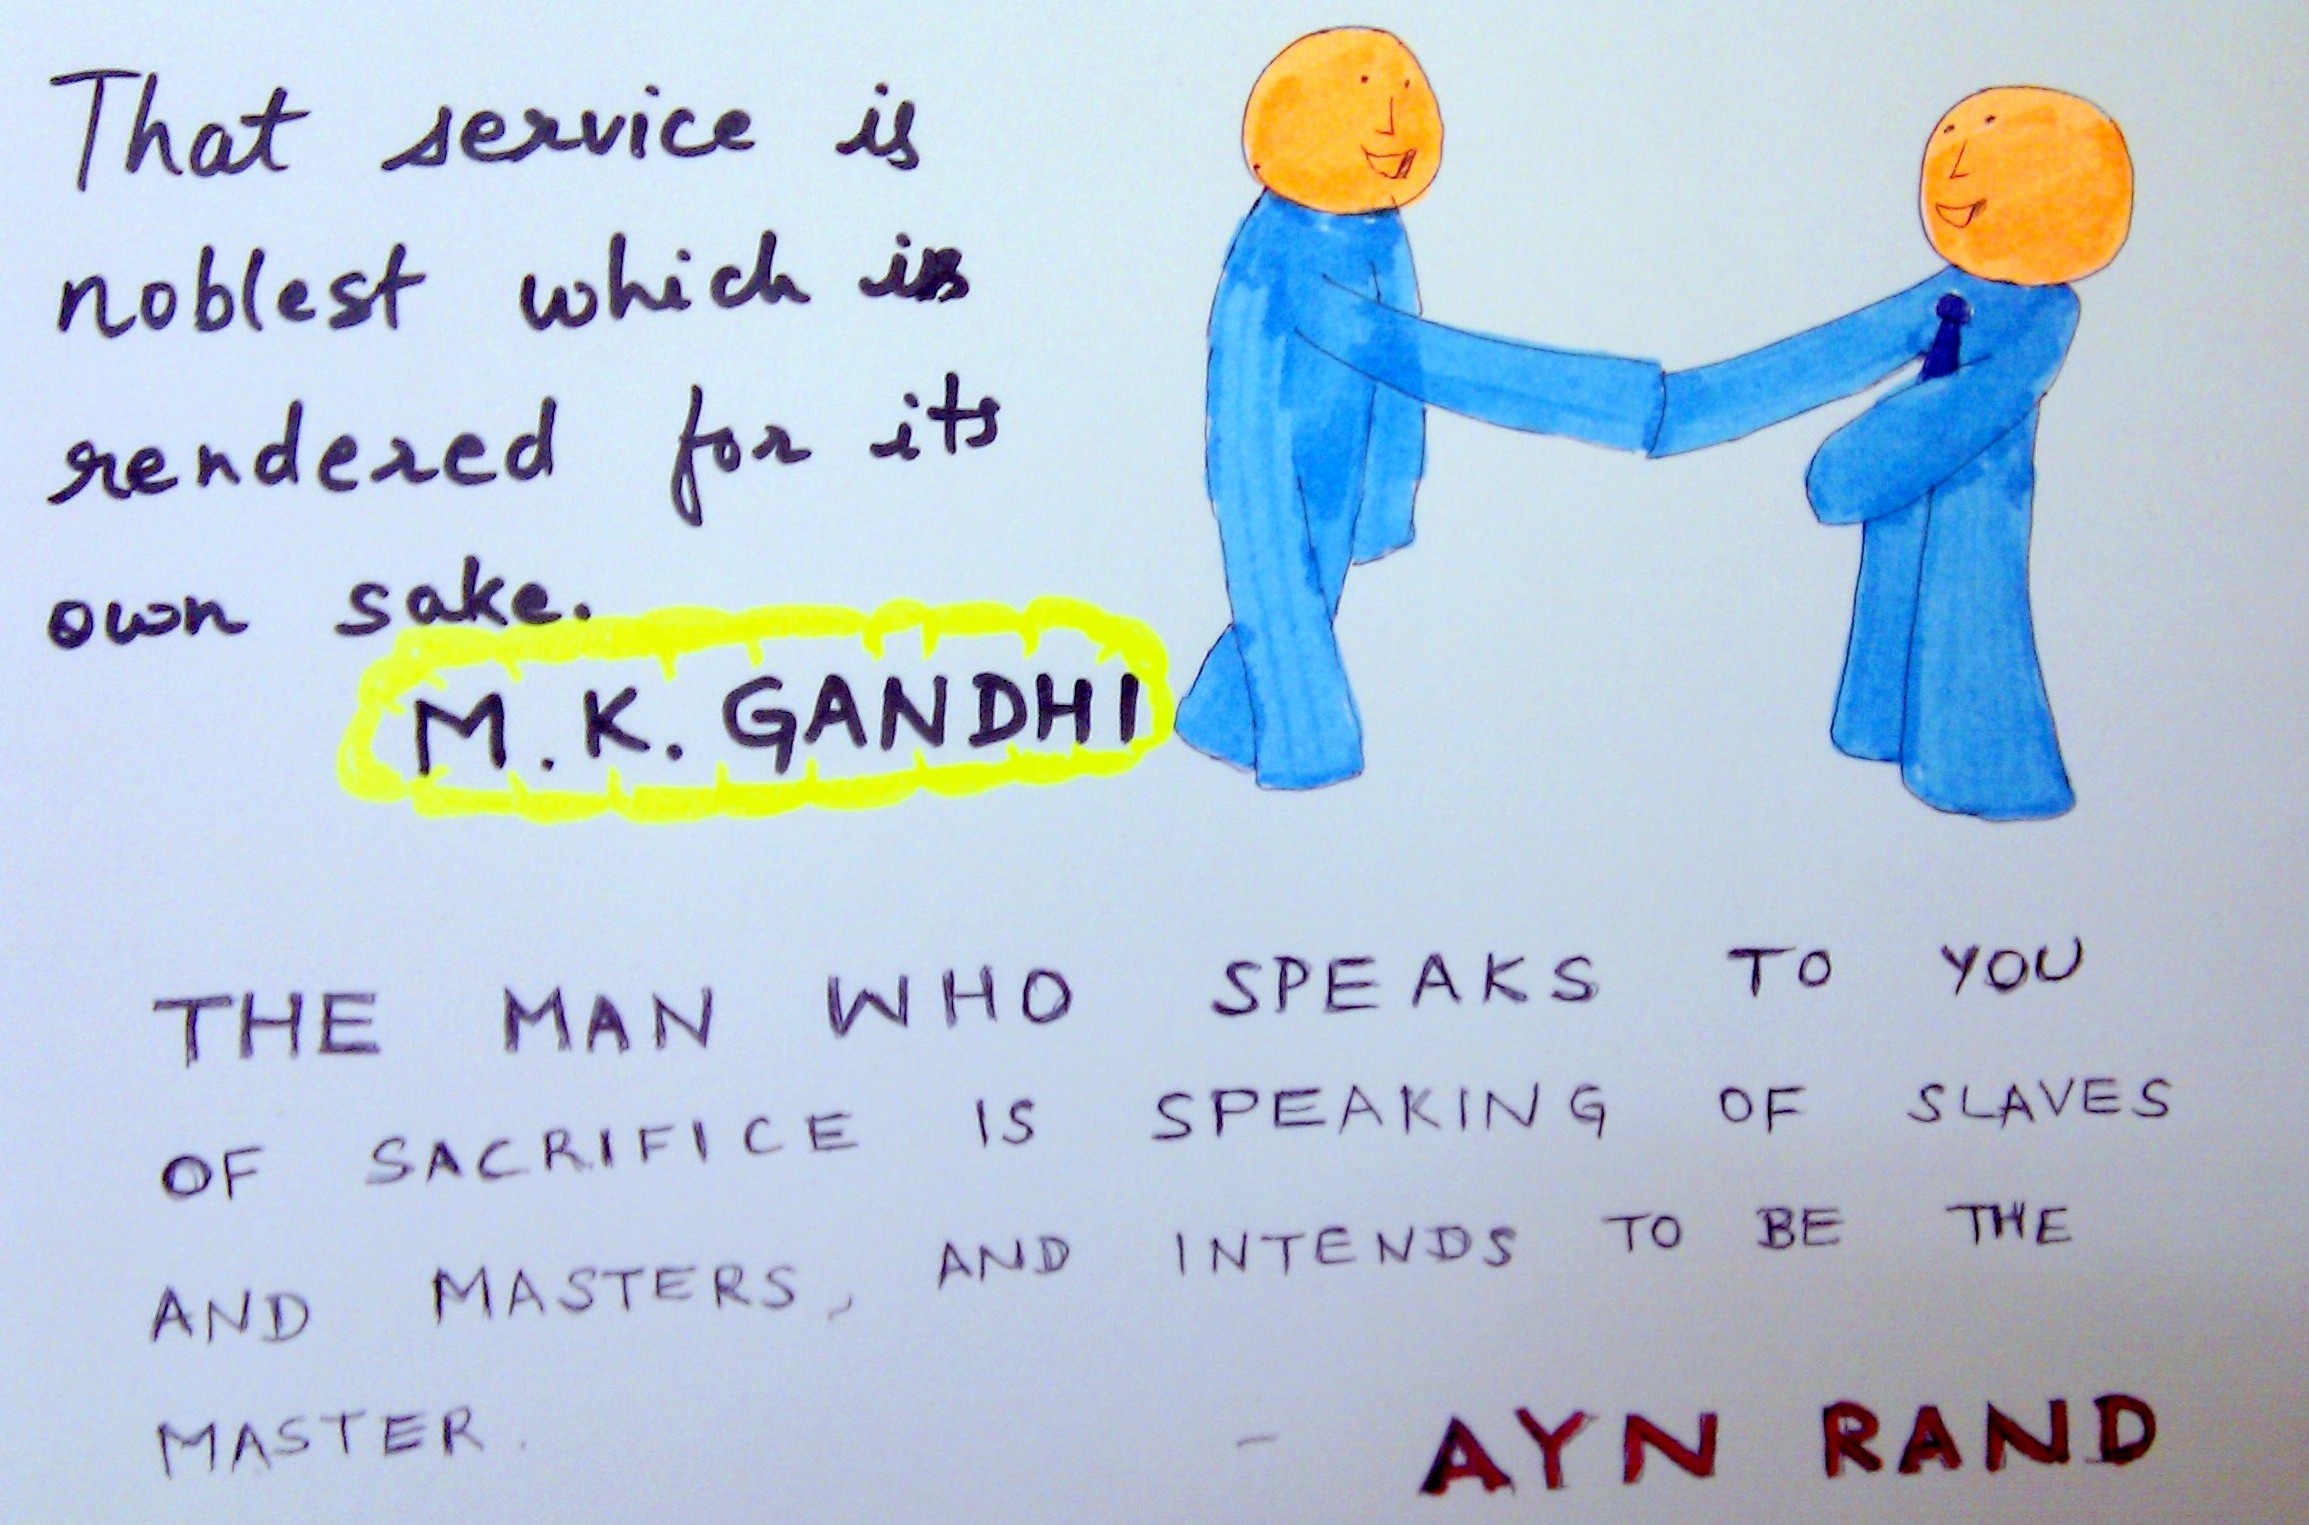 That service is
noblest which is
rendered for its
own sake.
M. K. GANDHI
THE MAN WHO SPEAKS TO YOU
OF SACRIFICE IS SPEAKING OF SLAVES
AND MASTERS, AND INTENDS TO BE THE
MASTER.
- AYN RAND